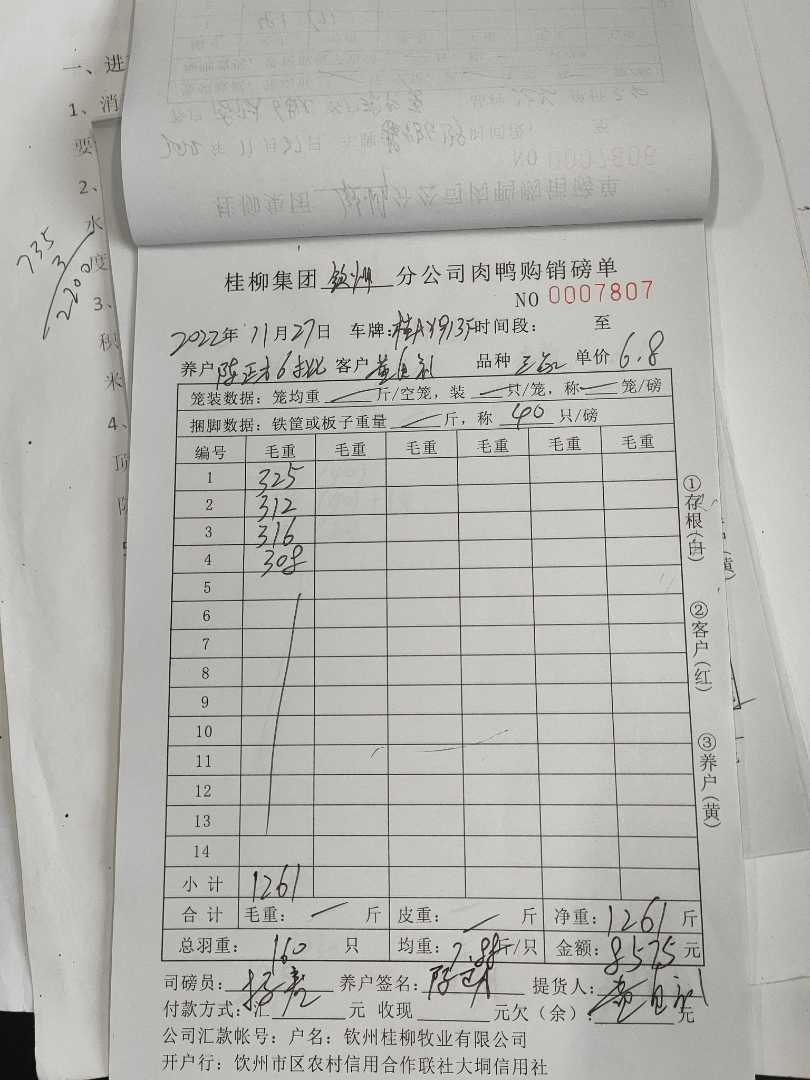 一、进
1、消
要
2、
水
度
3、
积
米
4、
顶
735
3
2200
桂柳集团 钦州 分公司肉鸭购销磅单
NO 0007807
2022年 11月27日 车牌: 时间段: 至
养户 客户 品种 单价 6.8
笼装数据: 笼均重 斤/空笼, 装 只/笼, 称 笼/磅
捆脚数据: 铁筐或板子重量 斤, 称 40 只/磅
编号 毛重 毛重 毛重 毛重 毛重 毛重
1 325
2 312
3 316
4 308
5
6
7
8
9
10
11
12
13
14
小 计 1261
合 计 毛重: 斤 皮重: 斤 净重: 1261 斤
总羽重: 160 只 均重: 7.88 斤/只 金额: 8575 元
司磅员: 养户签名: 提货人:
付款方式: 汇 元 收现 元欠(余): 元
公司汇款帐号: 户名: 钦州桂柳牧业有限公司
开户行: 饮州市区农村信用合作联社大垌信用社
①存根(白)
②客户(红)
③养户(黄)